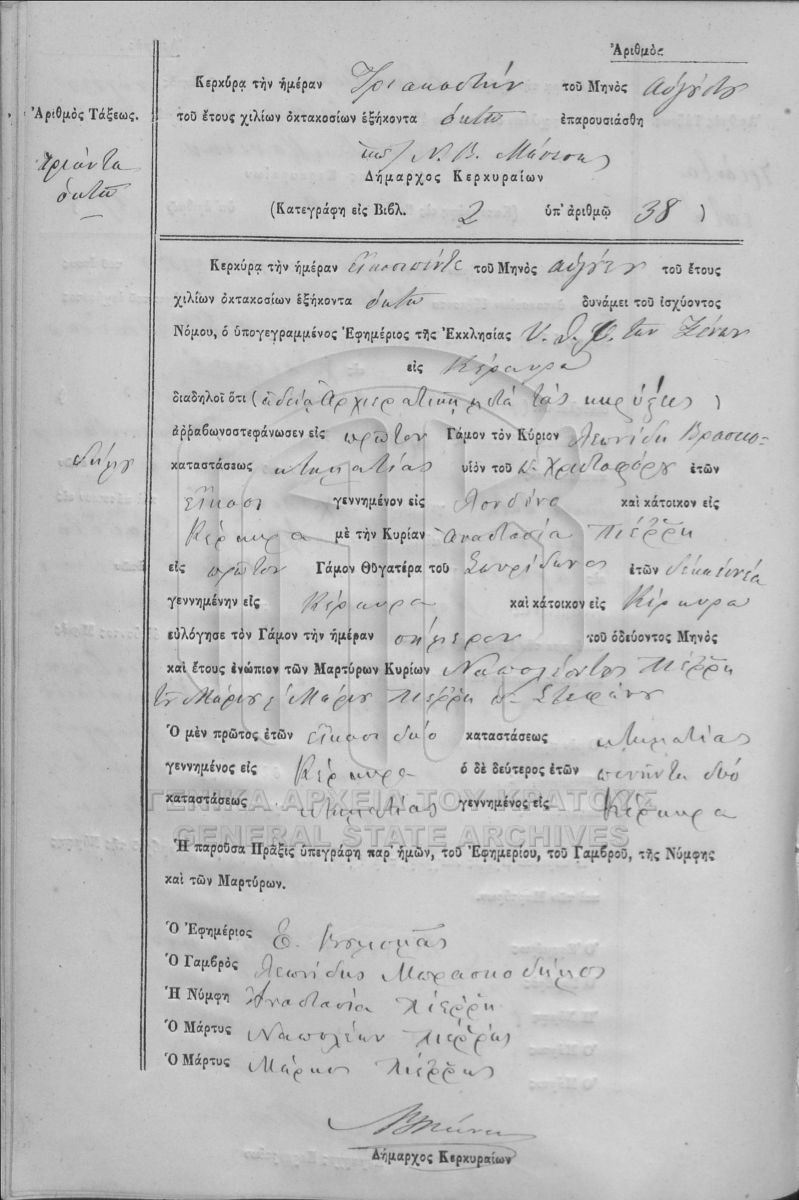 Ἀριθμὸς
Κερκύρᾳ τὴν ἡμέραν Τριακοστὴν τοῦ Μηνὸς Αὐγούστου
Ἀριθμὸς Τάξεως.
τοῦ ἔτους χιλίων ὀκτακοσίων ἑξήκοντα ὀκτὼ ἐπαρουσιάσθη
τριάντα
ὀκτὼ
Ν. Β. Μάνεσης
Δήμαρχος Κερκυραίων
(Κατεγράφη εἰς Βιβλ. 2 ὑπ' ἀριθμῷ 38 )
Κερκύρᾳ τὴν ἡμέραν εἰκοσιπέντε τοῦ Μηνὸς Αὐγούστου τοῦ ἔτους
χιλίων ὀκτακοσίων ἑξήκοντα ὀκτὼ δυνάμει τοῦ ἰσχύοντος
Νόμου, ὁ ὑπογεγραμμένος Ἐφημέριος τῆς Ἐκκλησίας Υ. Θ. τῶν Ξένων
εἰς Κέρκυρα
διαδηλοῖ ὅτι (ἀδείᾳ Ἀρχιερατικῇ μετὰ τὰς κηρύξεις )
ἀῤῥαβωνοστεφάνωσεν εἰς πρῶτον Γάμον τὸν Κύριον Λεωνίδη Βρασκο-
δήμο
καταστάσεως κτηματίας υἱὸν τοῦ Χριστοφόρου ἐτῶν
εἴκοσι γεννημένον εἰς Λονδίνο καὶ κάτοικον εἰς
Κέρκυρα μὲ τὴν Κυρίαν Ἀναστασία Πιέρρη
εἰς πρῶτον Γάμον Θυγατέρα τοῦ Σπυρίδωνος ἐτῶν δεκαεννέα
γεννημένην εἰς Κέρκυρα καὶ κάτοικον εἰς Κέρκυρα
εὐλόγησε τὸν Γάμον τὴν ἡμέραν σήμερον τοῦ ὁδεύοντος Μηνὸς
καὶ ἔτους ἐνώπιον τῶν Μαρτύρων Κυρίων Ναπολέοντος Πιέρρη
τοῦ Μάρκου, Μάρκου Πιέρρη Στεφάνου
Ὁ μὲν πρῶτος ἐτῶν εἴκοσι δύο καταστάσεως κτηματίας
γεννημένος εἰς Κέρκυρα ὁ δὲ δεύτερος ἐτῶν πενήντα δύο
καταστάσεως κτηματίας γεννημένος εἰς Κέρκυρα
ΓΕΝΙΚΑ ΑΡΧΕΙΑ ΤΟΥ ΚΡΑΤΟΥΣ
GENERAL STATE ARCHIVES
Ἡ παροῦσα Πρᾶξις ὑπεγράφη παρ' ἡμῶν, τοῦ Ἐφημερίου, τοῦ Γαμβροῦ, τῆς Νύμφης
καὶ τῶν Μαρτύρων.
Ὁ Ἐφημέριος Ε.
Ὁ Γαμβρὸς Λεωνίδης Μπρασκοδήμος
Ἡ Νύμφη Ἀναστασία Πιέρρη
Ὁ Μάρτυς Ναπολέων Πιέρρης
Ὁ Μάρτυς Μάρκος Πιέρρης
Δήμαρχος Κερκυραίων